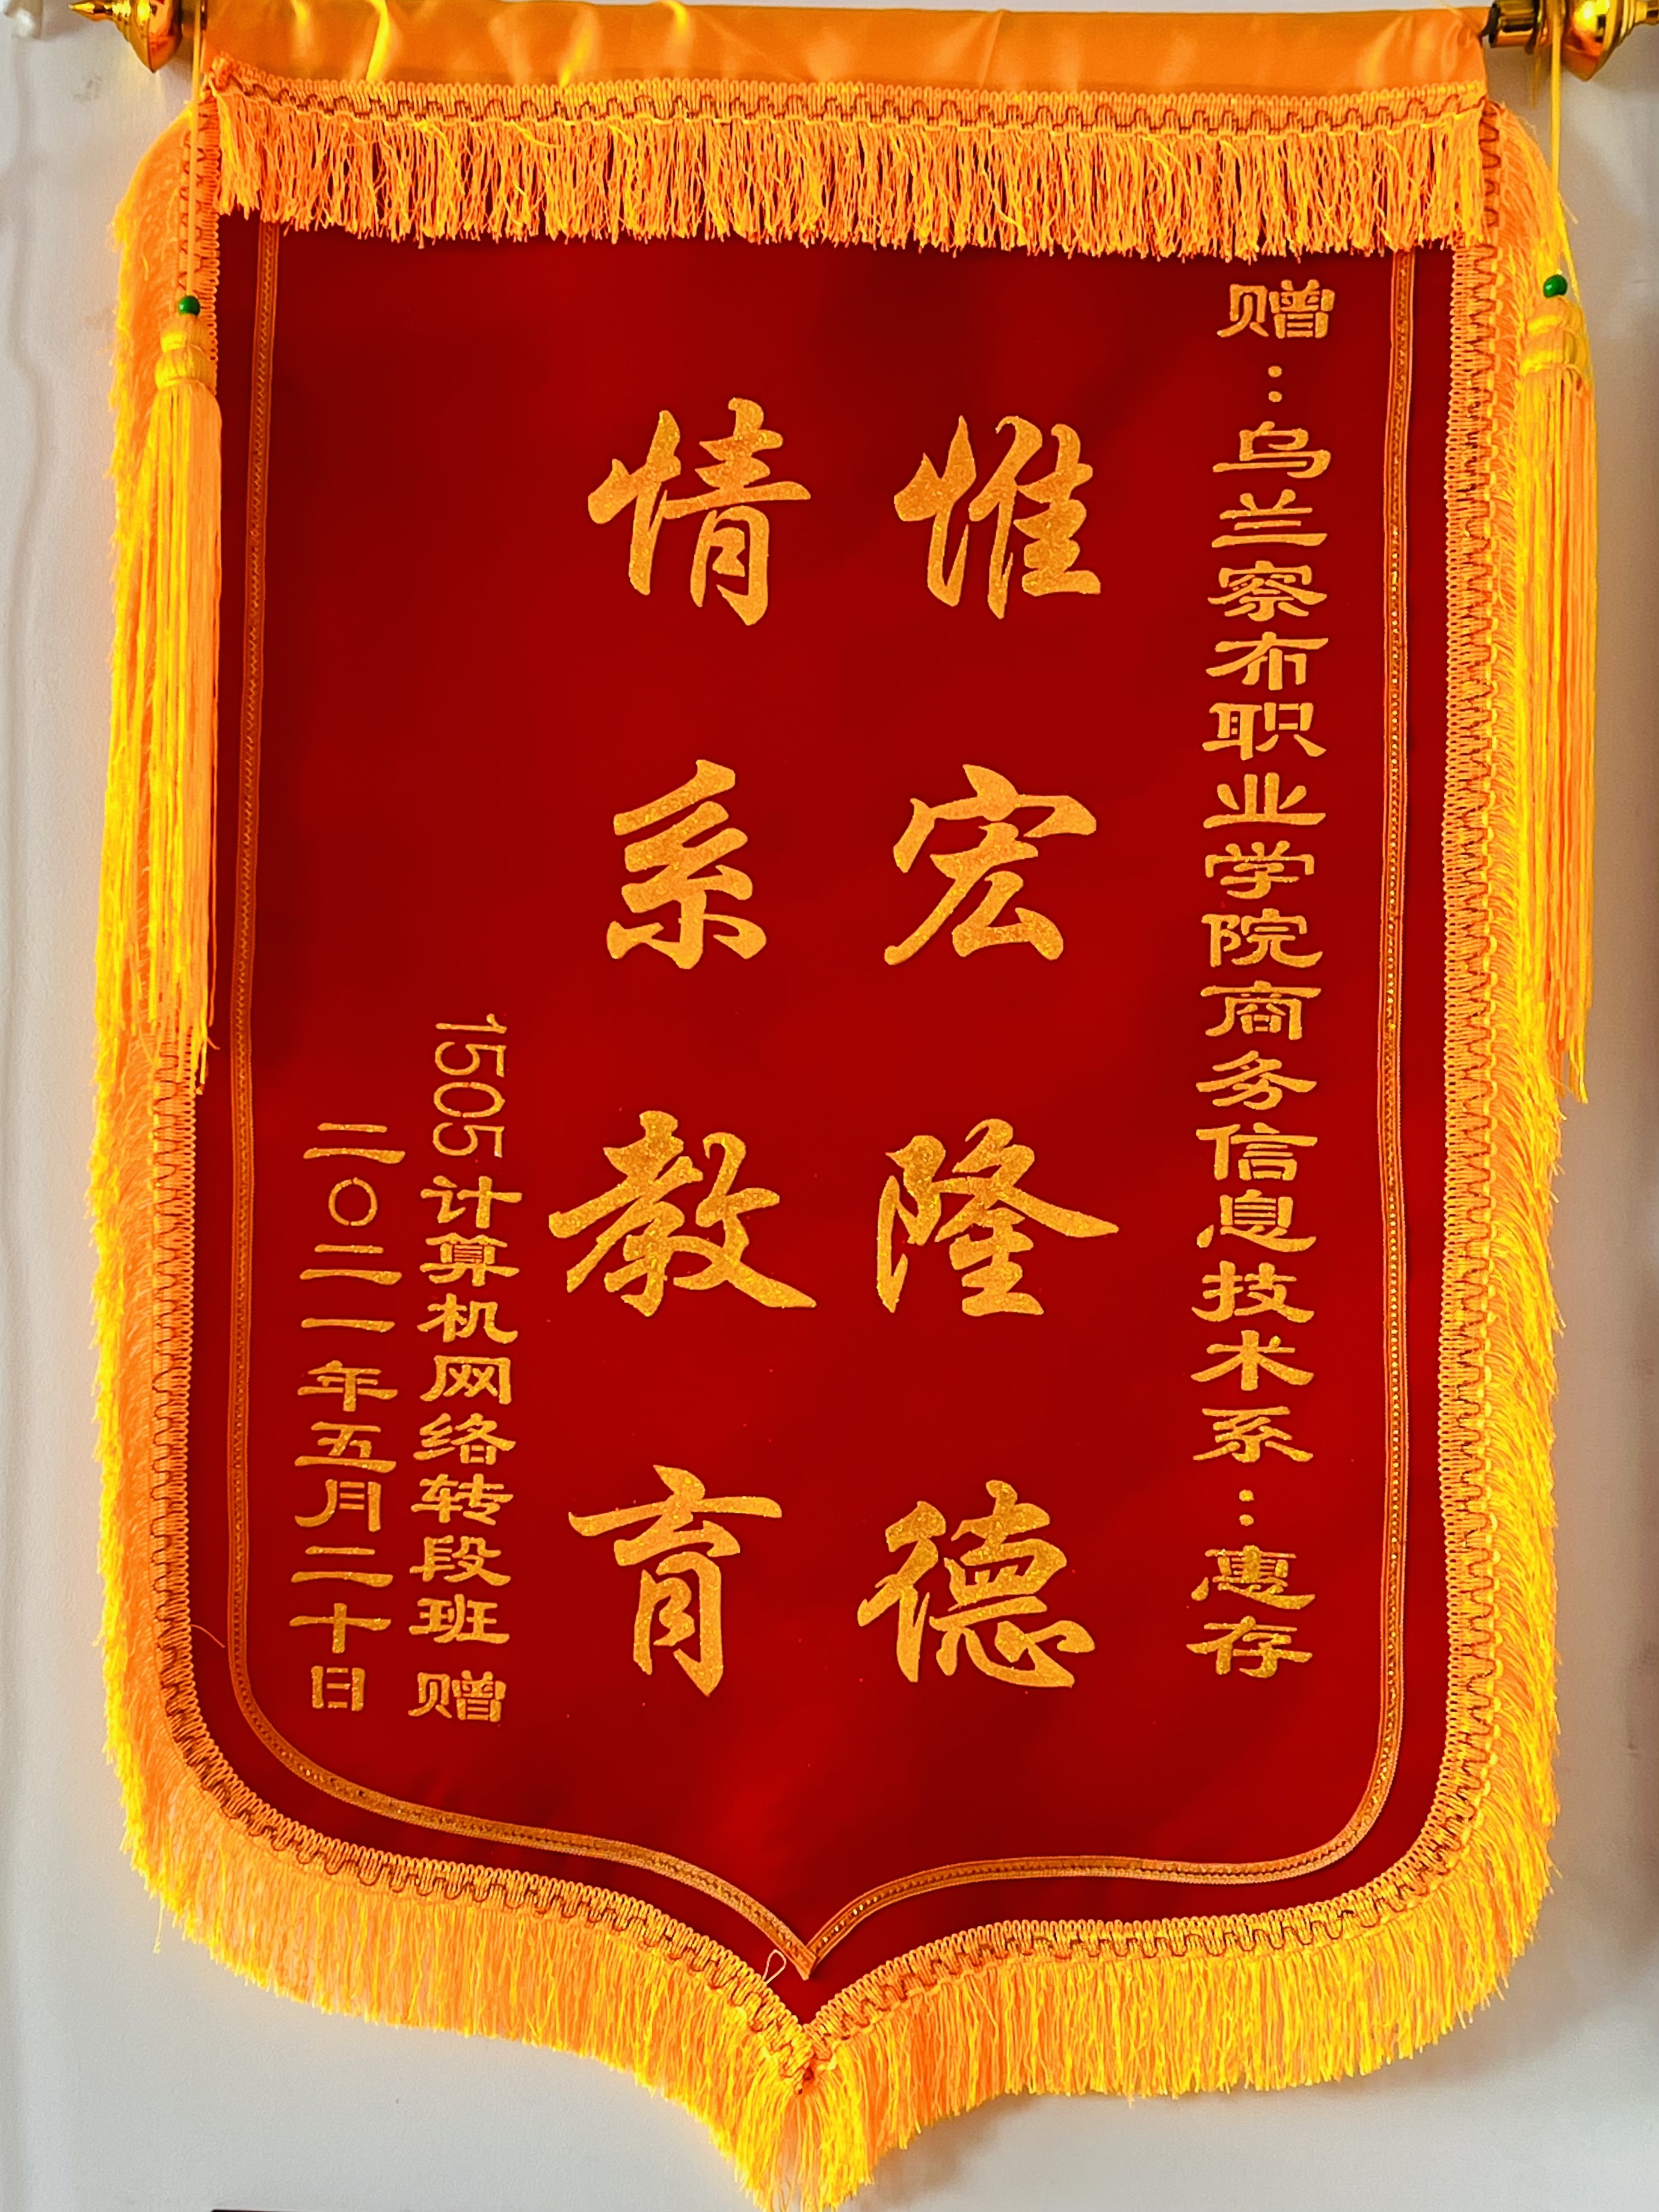 赠：乌兰察布职业学院商务信息技术系：惠存
惟宏隆德
情系教育
1505计算机网络转段班 赠
二〇二一年五月二十日